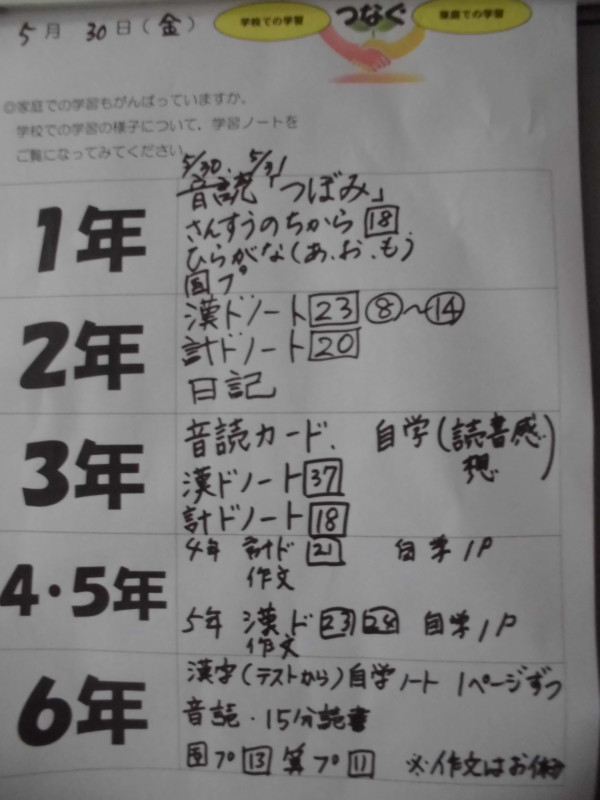 5月 30日(金)
学校での学習 つなぐ 家庭での学習
◎家庭での学習もがんばっていますか。
学校での学習の様子について、学習ノートを
ご覧になってみてください。
5/30、5/31
1年
音読「つぼみ」
さんすうのちから 18
ひらがな(あ、お、も)
国プ
2年
漢ドノート 23 ⑧〜⑭
計ドノート 20
日記
3年
音読カード、 自学(読書感想)
漢ドノート 37
計ドノート 18
4・5年
4年 計ド 21 自学1P
作文
5年 漢ド 23 24 自学1P
作文
6年
漢字(テストから)自学ノート 1ページずつ
音読・15分読書
国プ 13 算プ 11 ※作文はお休み